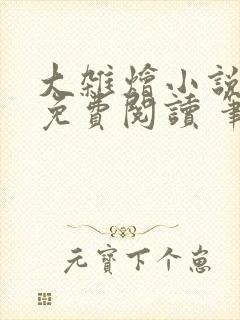 大雜燴小說
免費閱讀 筆
元寶下个崽